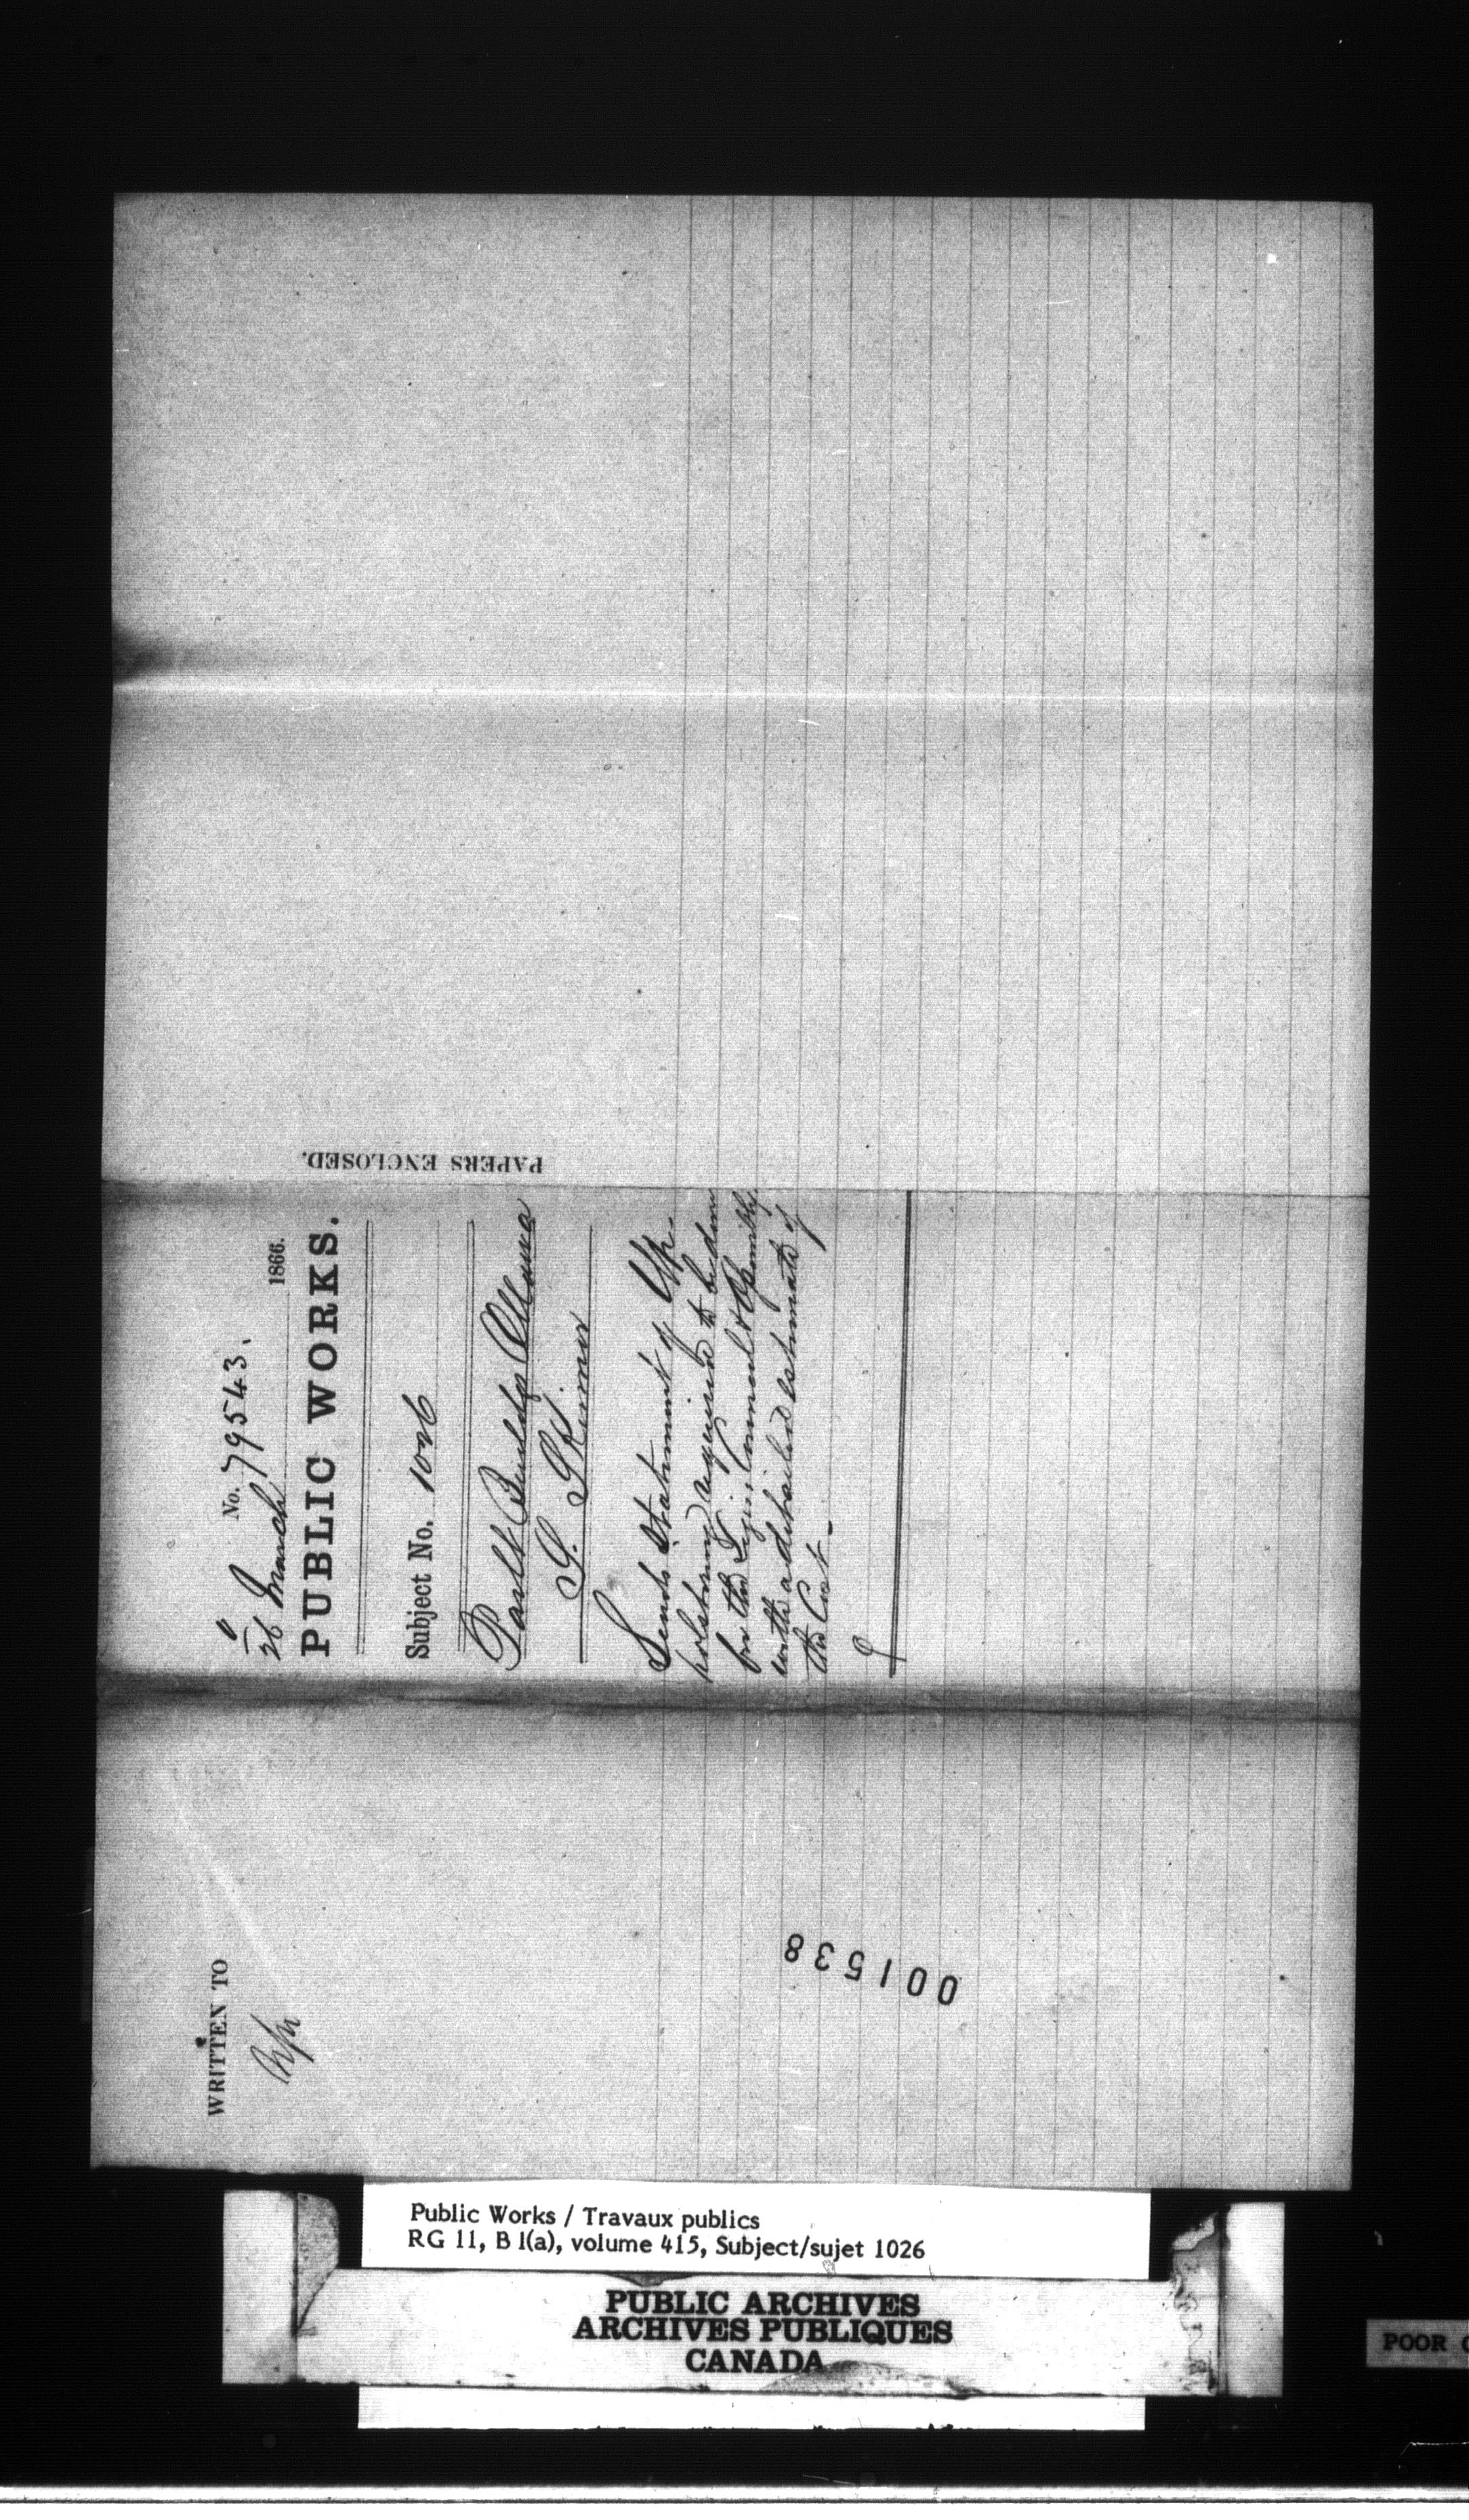 No. 79543.
26 March 1866.
PUBLIC WORKS.
Subject No. 1026
Parlt Buildgs Ottawa
S. Skinner
Sends Statement of Up-
holstering required to be done
for the Legis. Council & Assembly
with a detailed estimate of
the Cost.
PAPERS ENCLOSED.
WRITTEN TO
001538
Public Works / Travaux publics
RG 11, B 1(a), volume 415, Subject/sujet 1026
PUBLIC ARCHIVES
ARCHIVES PUBLIQUES
CANADA
POOR